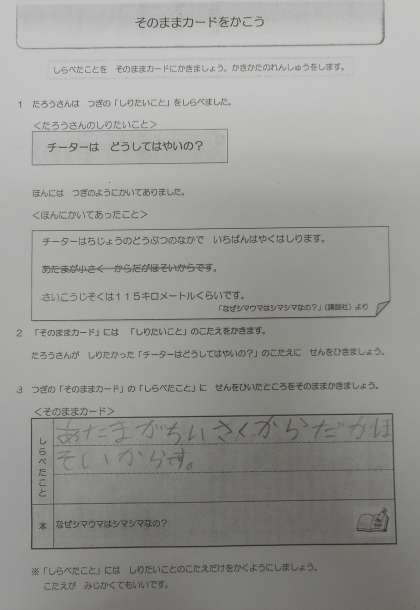 そのままカードをかこう
しらべたことを そのままカードにかきましょう。かきかたのれんしゅうをします。
1 たろうさんは つぎの「しりたいこと」をしらべました。
<たろうさんのしりたいこと>
チーターは どうしてはやいの?
ほんには つぎのようにかいてありました。
<ほんにかいてあったこと>
チーターはちじょうのどうぶつのなかで いちばんはやくはしります。
あたまが小さく からだがほそいからです。
さいこうじそくは115キロメートルくらいです。
「なぜシマウマはシマシマなの?」(講談社)より
2 「そのままカード」には 「しりたいこと」のこたえをかきます。
たろうさんが しりたかった「チーターはどうしてはやいの?」のこたえに せんをひきましょう。
3 つぎの「そのままカード」の「しらべたこと」に せんをひいたところをそのままかきましょう。
<そのままカード>
しらべたこと
あたまがちいさくからだがほ
そいからです。
本 なぜシマウマはシマシマなの?
※「しらべたこと」には しりたいことのこたえだけをかくようにしましょう。
こたえが みじかくてもいいです。